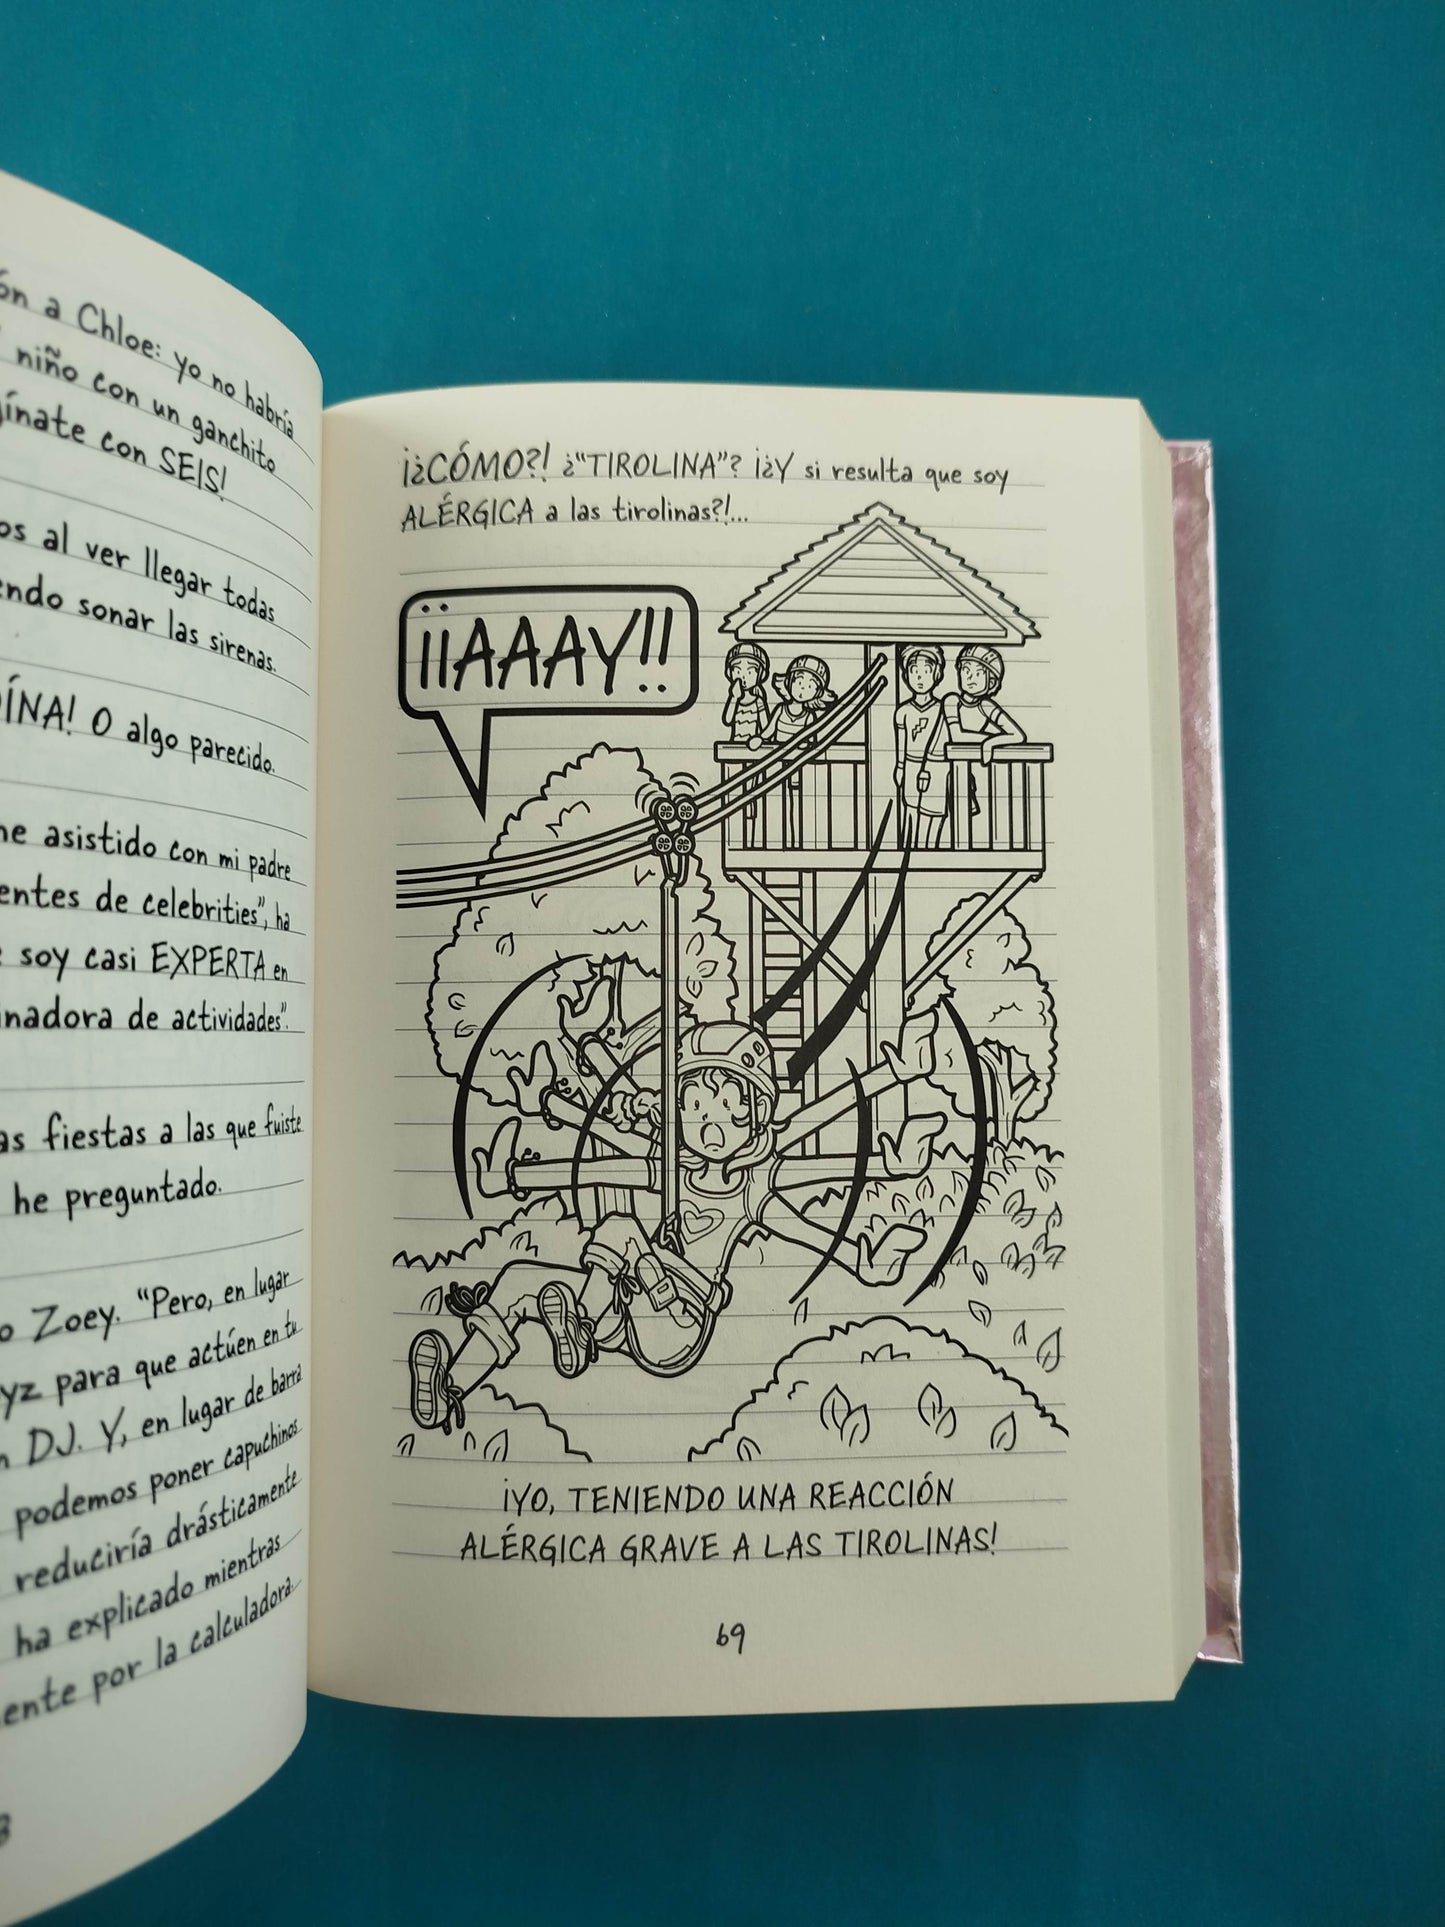 a Chloe: yo no habría
niño con un ganchito
con SEIS!
al ver llegar todas
sonar las sirenas.
O algo parecido.
asistido con mi padre
de celebrities", ha
soy casi EXPERTA en
de actividades".
fiestas a las que fuiste
he preguntado.
Zoey. "Pero, en lugar
para que actúen en tu
DJ. Y, en lugar de barra
podemos poner capuchinos
reduciría drásticamente
ha explicado mientras
por la calculadora.
¡¿CÓMO?! ¿"TIROLINA"? ¡¿Y si resulta que soy
ALÉRGICA a las tirolinas?!...
¡¡AAAY!!
¡YO, TENIENDO UNA REACCIÓN
ALÉRGICA GRAVE A LAS TIROLINAS!
69